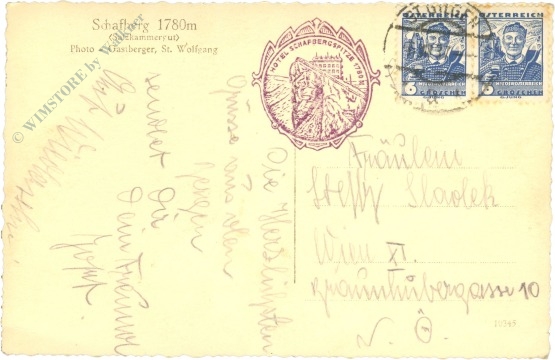 Schafberg 1780m
(Salzkammergut)
Photo Gastberger, St. Wolfgang
© WIMSTORE by Wimmer
HOTEL SCHAFBERGSPITZE 1780
ST. GILGEN
ÖSTERREICH
6 6
GROSCHEN
ÖSTERREICH
6
GROSCHEN
Die herzlichsten
Grüsse aus den
Bergen
sendet Dir
Dein
Josef
Fräulein
Steffy Sladek
Wien XI.
Braunhubergasse 10
N. Ö.
10345